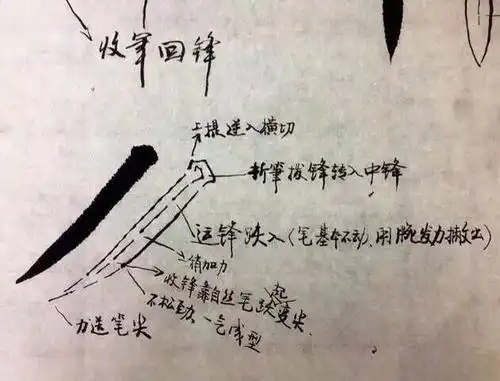 收笔回锋
上提逆入横切
折筆拨锋转入中锋
运锋跌入(笔基本不动,用腕发力撇出)
稍加力
收锋靠自然笔跌起变尖.
不松劲、一气成型
力送笔尖